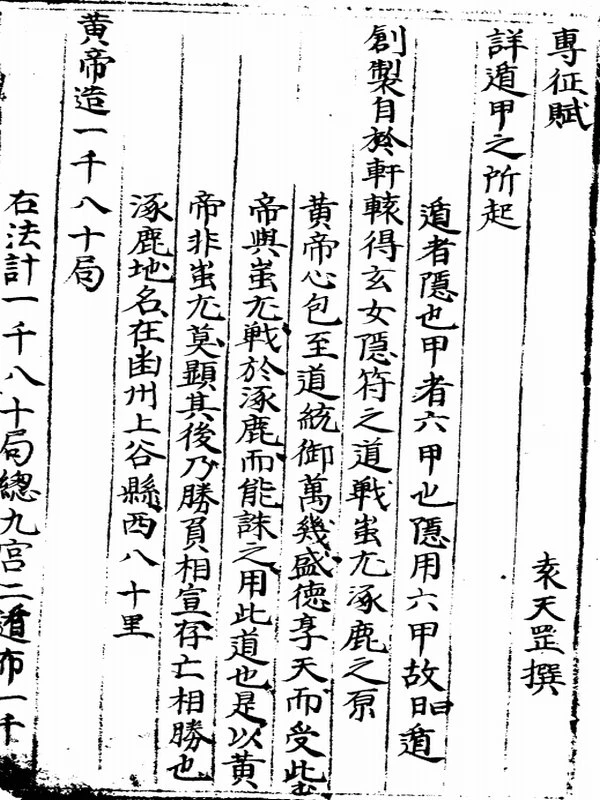 專征賦
袁天罡撰
詳遁甲之所起
遁者隱也甲者六甲也隱用六甲故曰遁
創製自於軒轅得玄女隱符之道戰蚩尤涿鹿之原
黃帝心包至道統御萬幾盛德享天而受此
帝與蚩尤戰於涿鹿而能誅之用此道也是以黃
帝非蚩尤莫顯其後乃勝負相宣存亡相勝也
涿鹿地名在幽州上谷縣西八十里
黃帝造一千八十局
右法計一千八十局總九宮二遁布一千